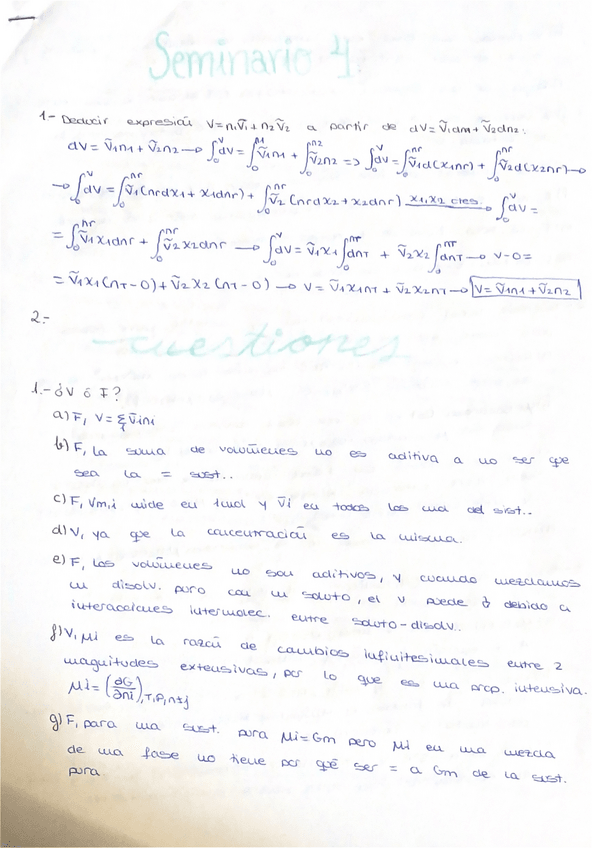 Seminario 4.
1- Deducir expresión V=n₁V̄₁+n₂Ṽ₂ a partir de dV=Ṽ₁dn₁+Ṽ₂dn₂:
dV=Ṽ₁n₁+Ṽ₂n₂→∫₀ⱽdV=∫₀ⁿ¹Ṽ₁n₁+∫₀ⁿ²Ṽ₂n₂⇒∫₀ⱽdV=∫₀ⁿᵀṼ₁d(x₁nT)+∫₀ⁿᵀṼ₂d(x₂nT)→
→∫₀ⱽdV=∫₀ⁿᵀṼ₁(nTdx₁+x₁dnT)+∫₀ⁿᵀṼ₂(nTdx₂+x₂dnT) x₁,x₂ ctes→∫₀ⱽdV=
=∫₀ⁿᵀṼ₁x₁dnT+∫₀ⁿᵀṼ₂x₂dnT→∫₀ⱽdV=Ṽ₁x₁∫₀ⁿᵀdnT+Ṽ₂x₂∫₀ⁿᵀdnT→V-0=
=Ṽ₁x₁(nT-0)+Ṽ₂x₂(nT-0)→V=Ṽ₁x₁nT+Ṽ₂x₂nT→V=Ṽ₁n₁+Ṽ₂n₂
2:-
-cuestiones
1.-¿V ó F?
a) F, V=ΣV̄ini
b) F, La suma de volúmenes no es aditiva a no ser que
sea la = sust..
c) F, Vm,i mide en 1mol y V̄i en todos los mol del sist..
d) V, ya que la concentración es la misma.
e) F, Los volúmenes no son aditivos, y cuando mezclamos
un disolv. puro con un soluto, el V puede debido a
interacciones intermolec. entre soluto-disolv..
f) V, μi es la razón de cambios infinitesimales entre 2
magnitudes extensivas, por lo que es una prop. intensiva.
μi=(∂G/∂ni),T,P,n≠j
g) F, para una sust. pura μi=Gm pero μi en una mezcla
de una fase no tiene por qué ser = a Gm de la sust.
pura